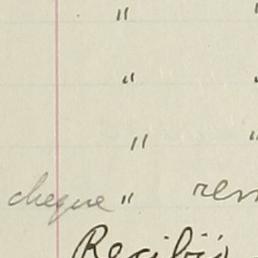 "
"
"
cheque " rem
Recibió